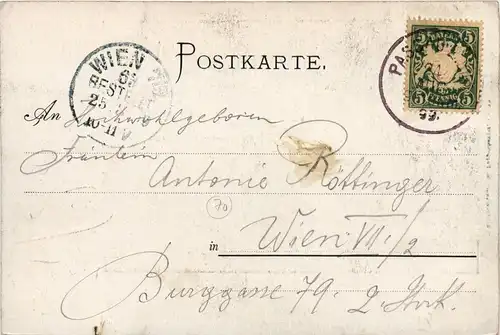 POSTKARTE.
WIEN
BESTE
25
BAYERN
5 5
PFENNIG
PAS
99.
An Hochwohlgeboren
Fräulein
Antonie Röttinger
70
in Wien VII/2
Burggasse 79. 2. Stock.